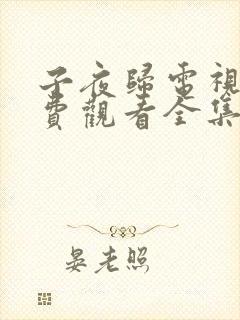 子夜歸電視
費觀看全集
晏老照